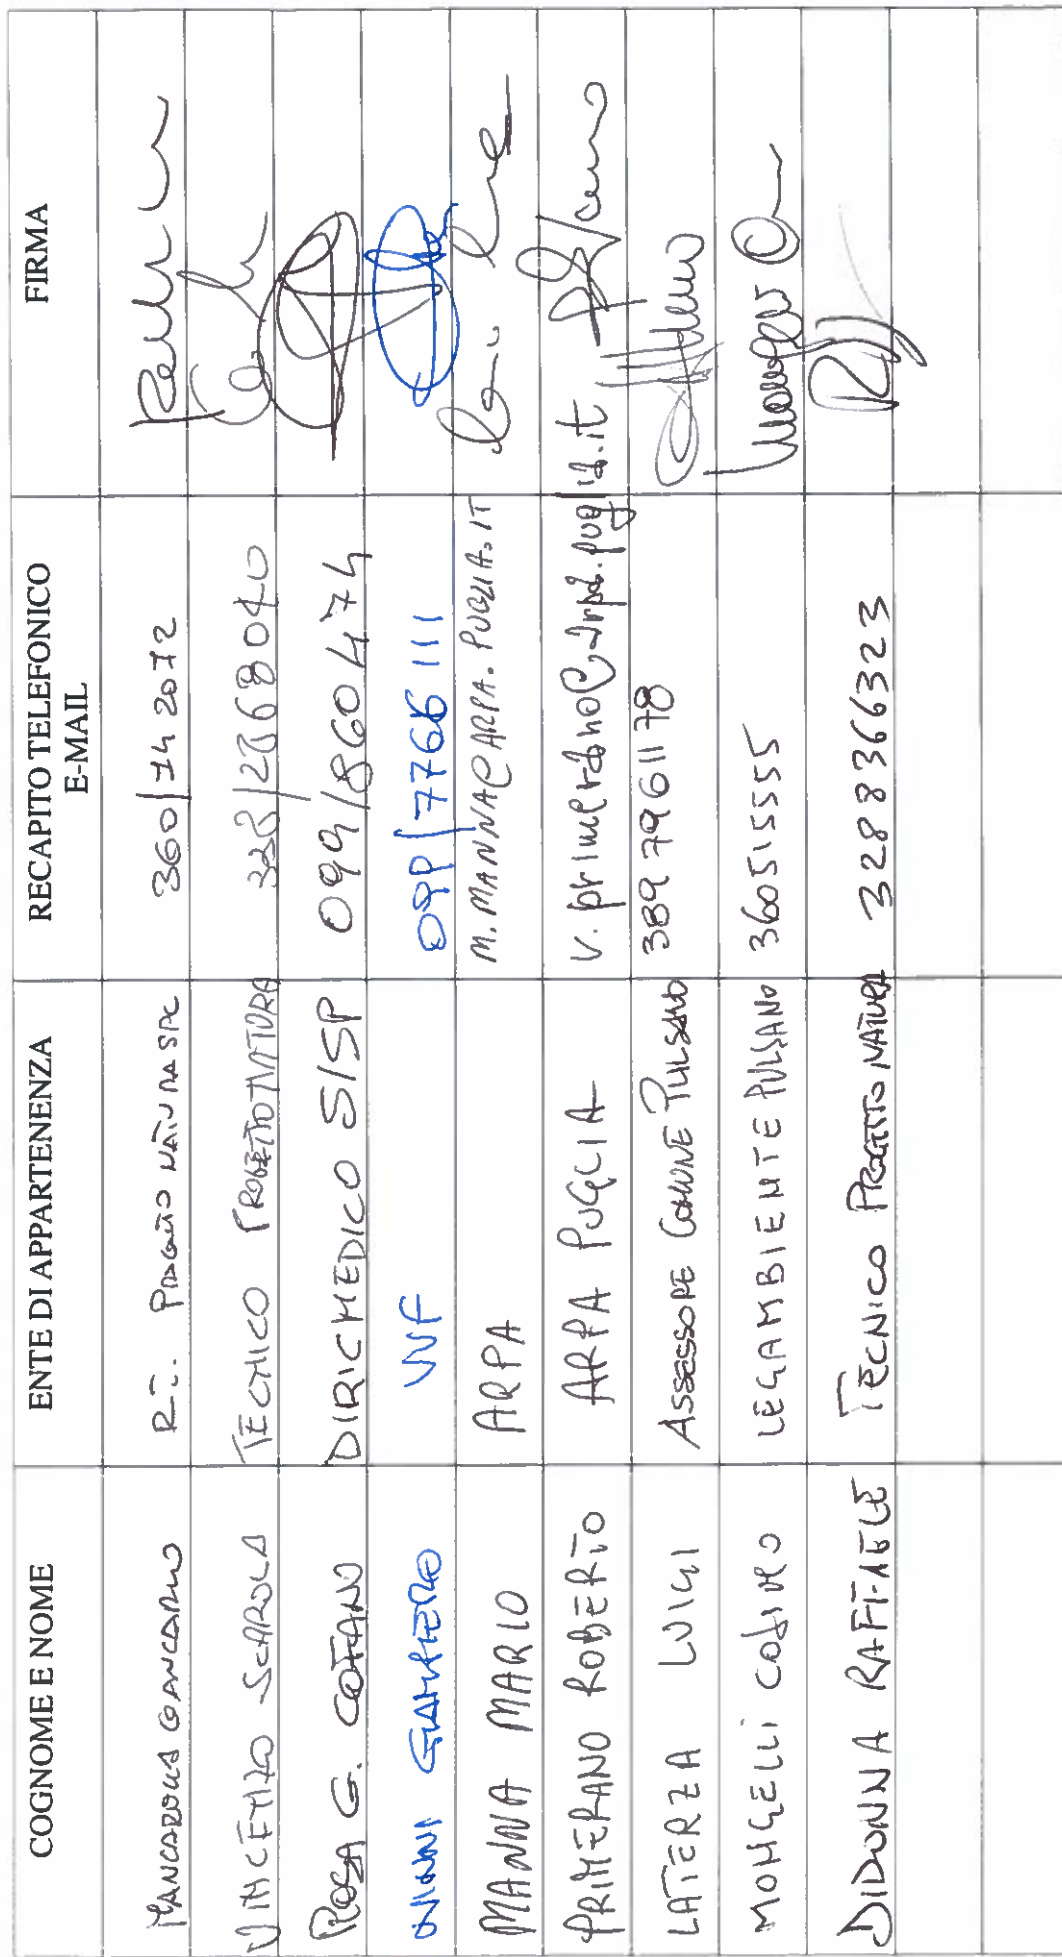 COGNOME E NOME ENTE DI APPARTENENZA RECAPITO TELEFONICO E-MAIL FIRMA
GIANCARLO 360/742072
VINCENZO SCAROLA TECNICO PROGETTO NATURA 328/2268040
ROSA G. COFANO DIRIG MEDICO SISP 099/860474
NINNI GIAMPIERO VVF 099/7766111
MANNA MARIO ARPA M.MANNA@ARPA.PUGLIA.IT
PRIMERANO ROBERTO ARPA PUGLIA v.primerano@arpa.puglia.it
LATERZA LUIGI ASSESSORE COMUNE PULSANO 3897961178
MONGELLI COSIMO LEGAMBIENTE PULSANO 360515555
DIDONNA RAFFAELE TECNICO PROGETTO NATURA 3288366323